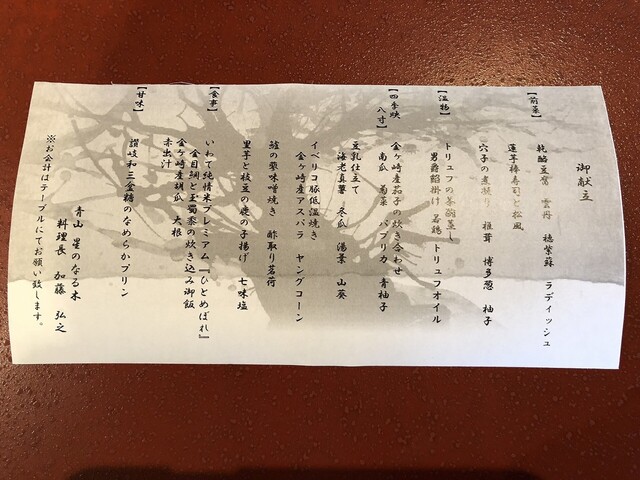 御献立
【前菜】
乾酪豆腐 雲丹 穂紫蘇 ラディッシュ
蓮芋棒寿司と松風
穴子の煮凍り 椎茸 博多葱 柚子
【温物】
トリュフの茶碗蒸し
男爵餡掛け 若鶏 トリュフオイル
【四季映 八寸】
金ヶ崎産茄子の炊き合わせ
南瓜 菊菜 パプリカ 青柚子
豆乳仕立て
海老真薯 冬瓜 湯葉 山葵
イベリコ豚低温焼き
金ヶ崎産アスパラ ヤングコーン
鱸の蓼味噌焼き 酢取り茗荷
里芋と枝豆の鹿の子揚げ 七味塩
【食事】
いわて純情米プレミアム『ひとめぼれ』
金目鯛と玉蜀黍の炊き込み御飯
金ヶ崎産胡瓜 大根
赤出汁
【甘味】
讃岐和三盆糖のなめらかプリン
青山 星のなる木
料理長 加藤 弘之
※お会計はテーブルにてお願い致します。